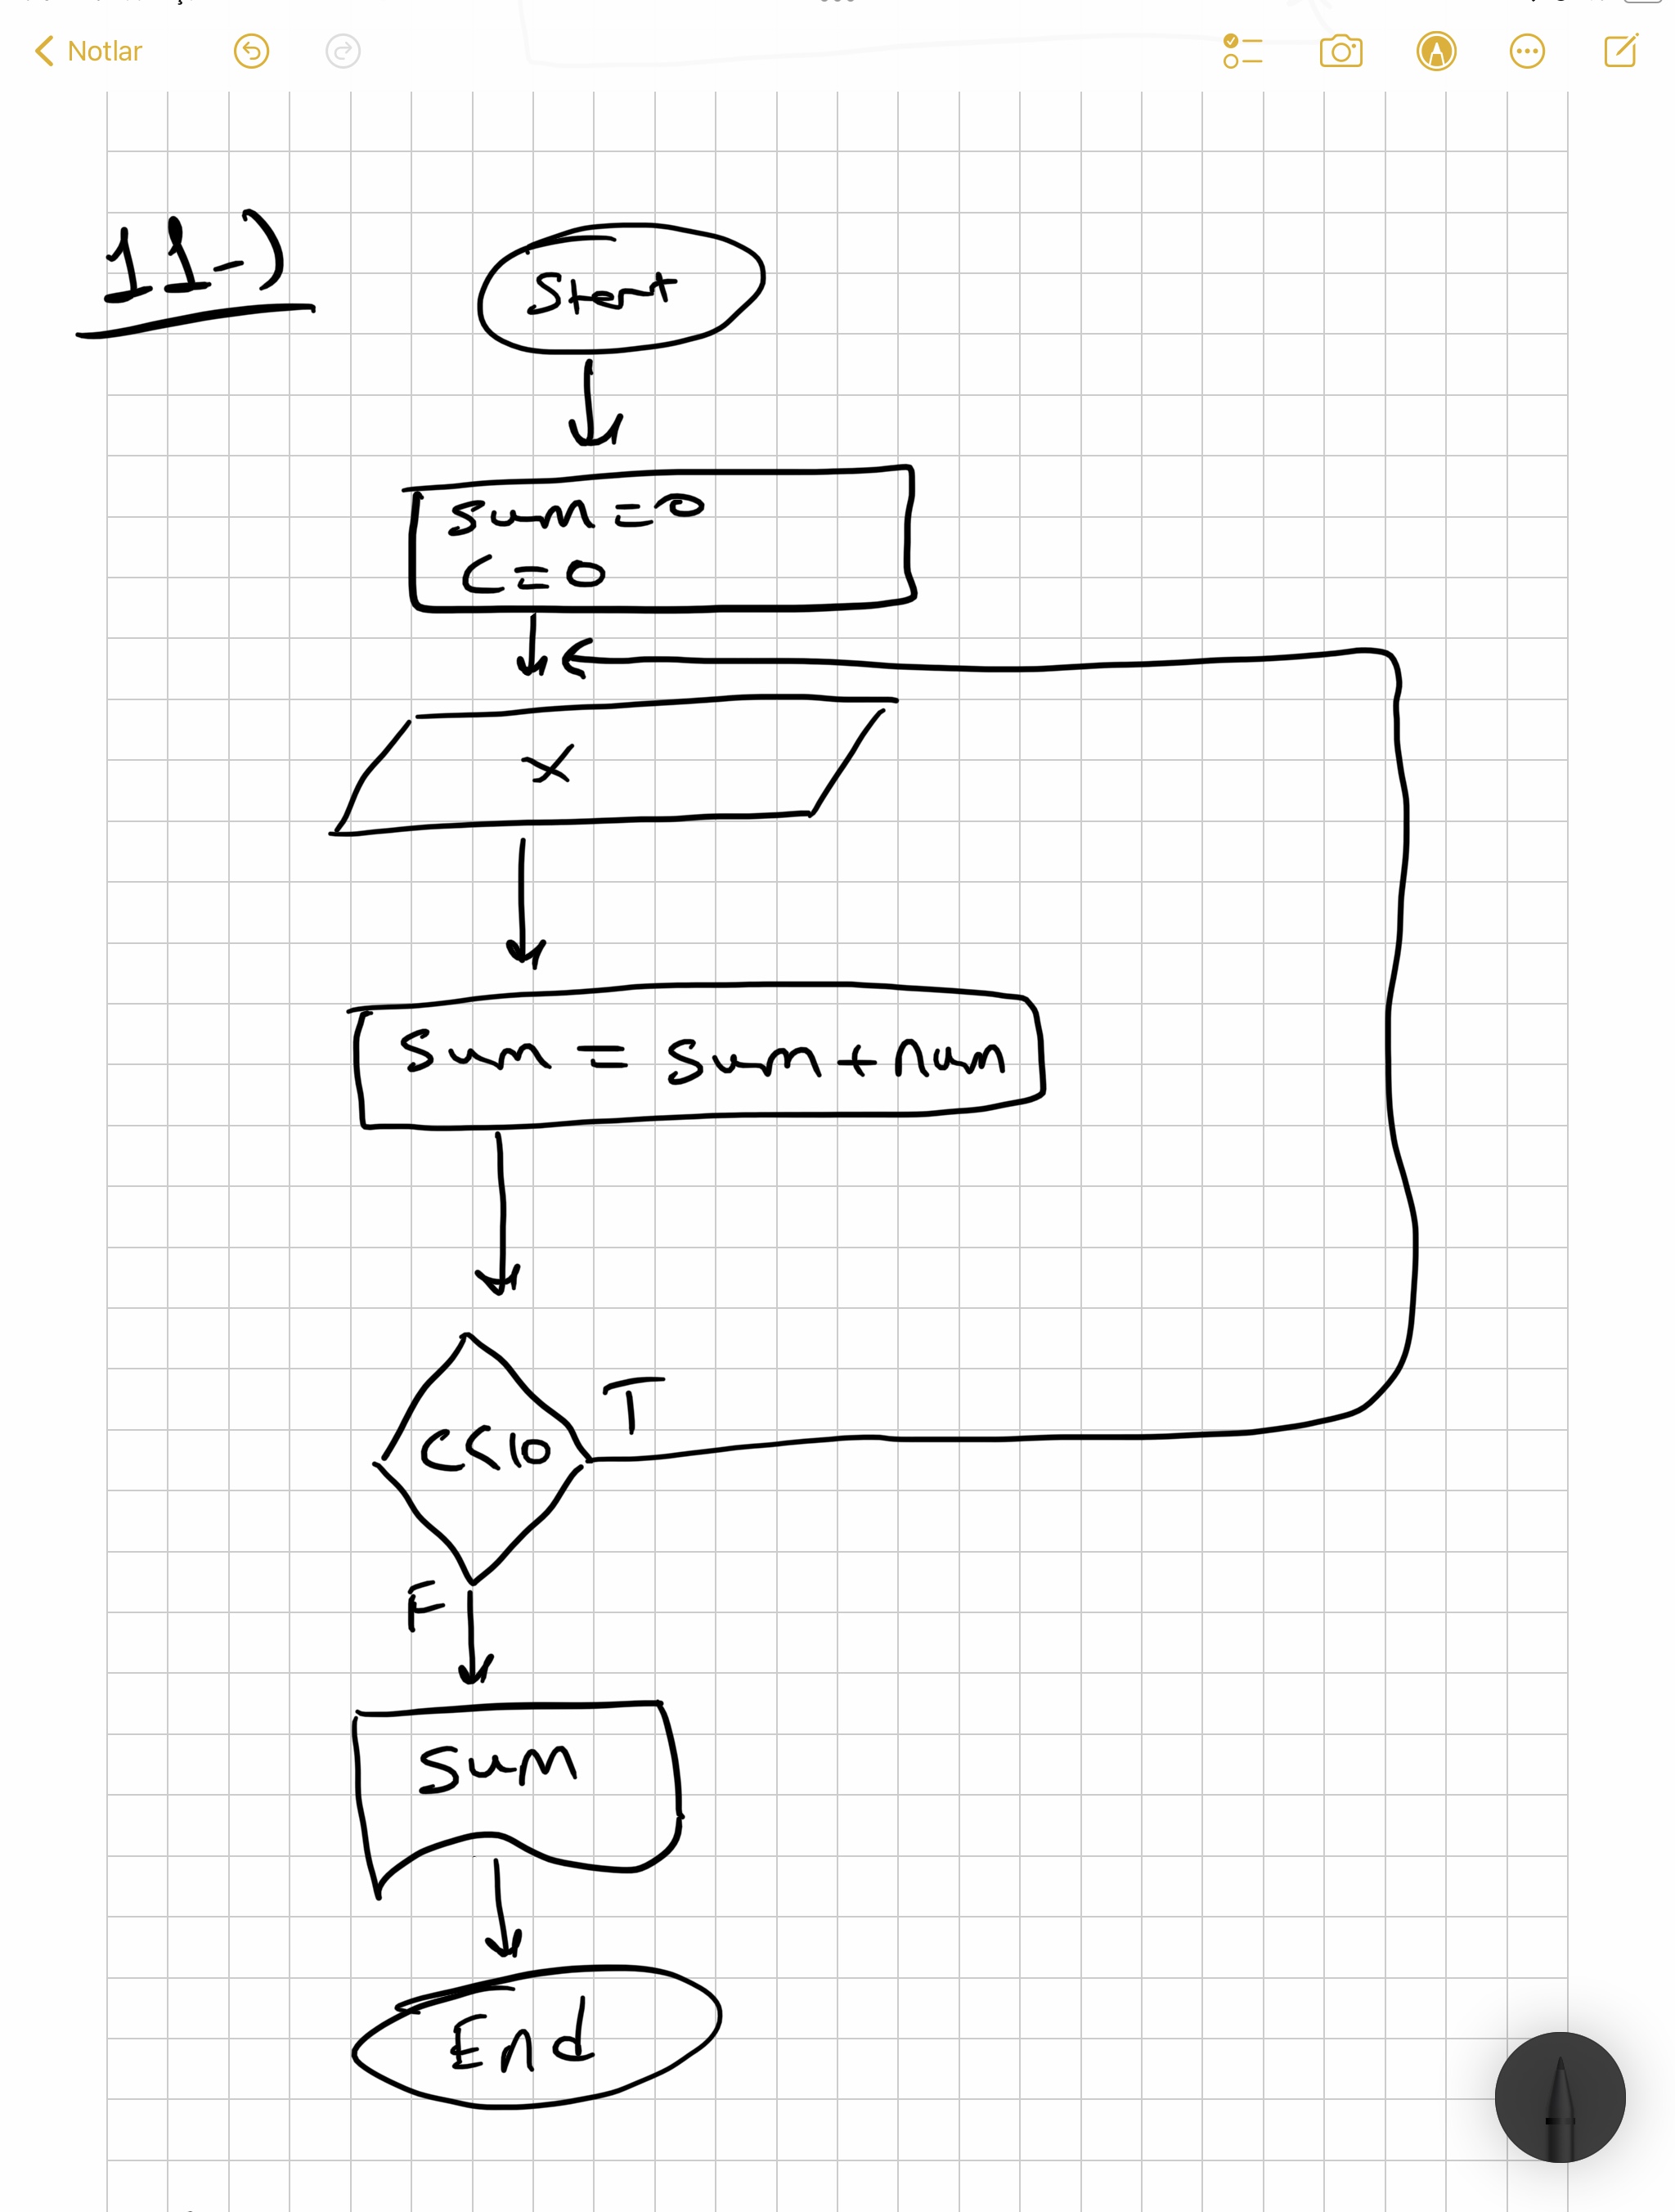 Notlar
11-)
Start
sum=0
C=0
x
sum = sum+num
C<10
T
F
sum
End